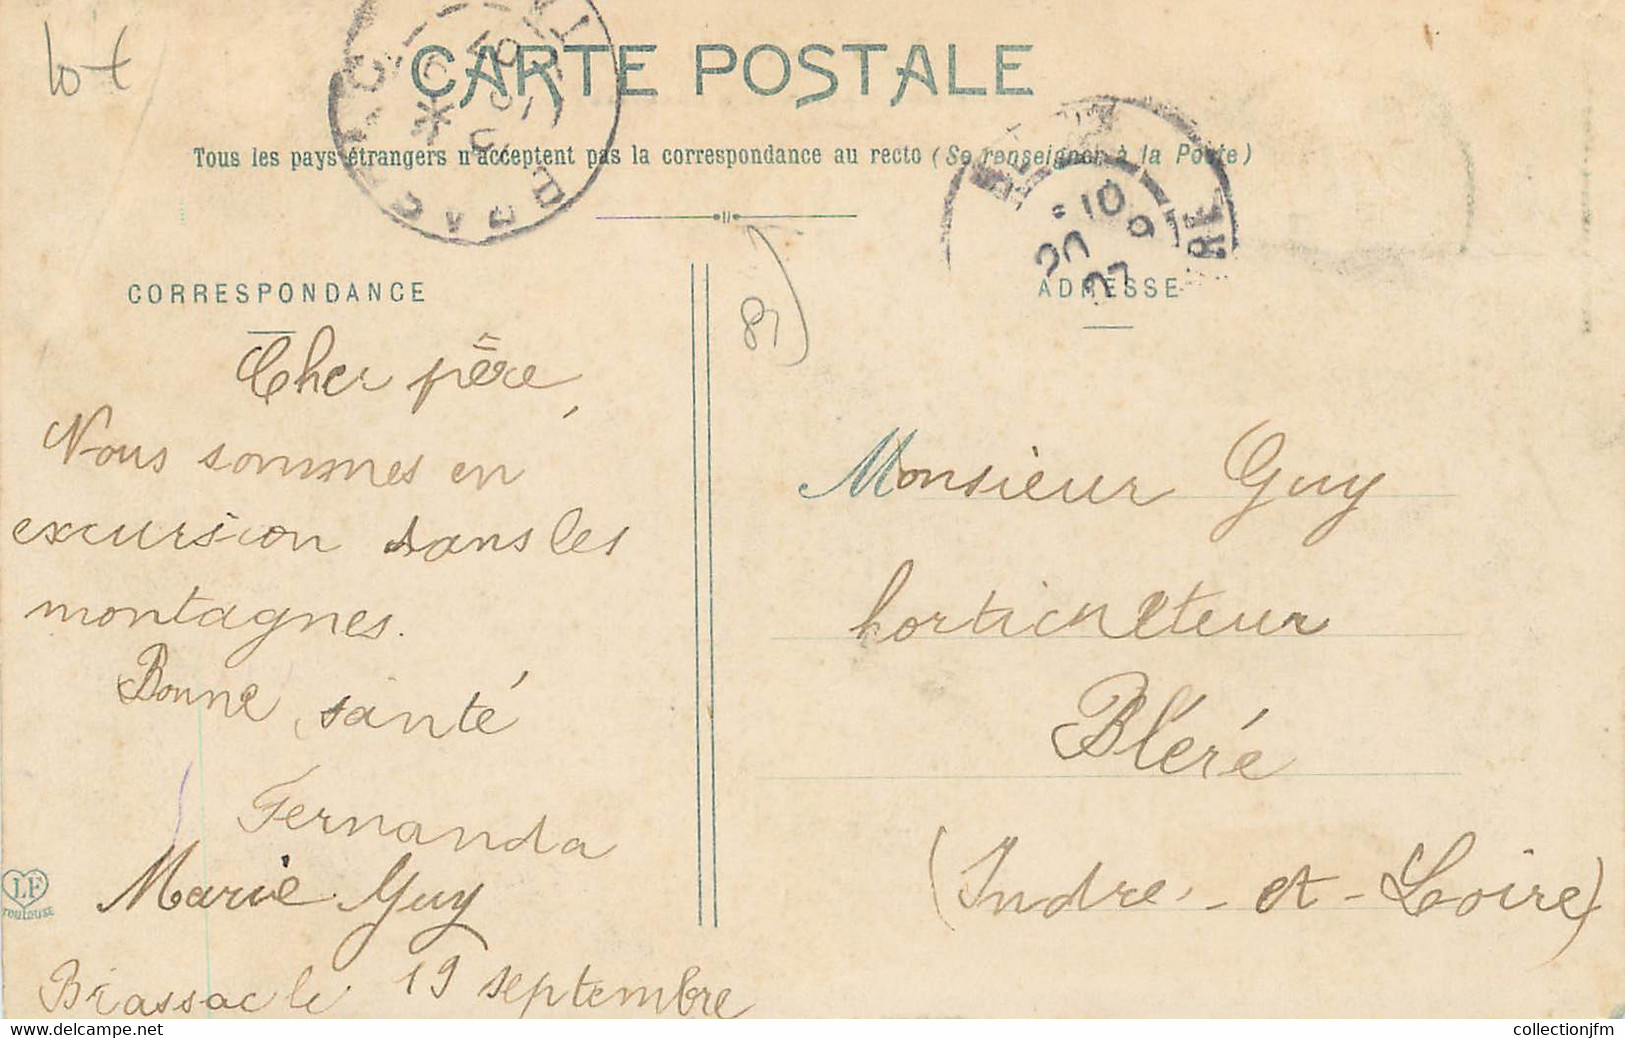 lot
CARTE POSTALE
Tous les pays étrangers n'acceptent pas la correspondance au recto (Se renseigner à la Poste)
BRASSAC
10
20 9
07
RE
CORRESPONDANCE
ADRESSE
81)
Cher père,
Nous sommes en
excursion dans les
montagnes.
Bonne santé
Fernanda
Marie Guy
Brassac le 19 septembre
Monsieur Guy
horticulteur
Bléré
(Indre-et-Loire)
LF
TOULOUSE
collectionjfm